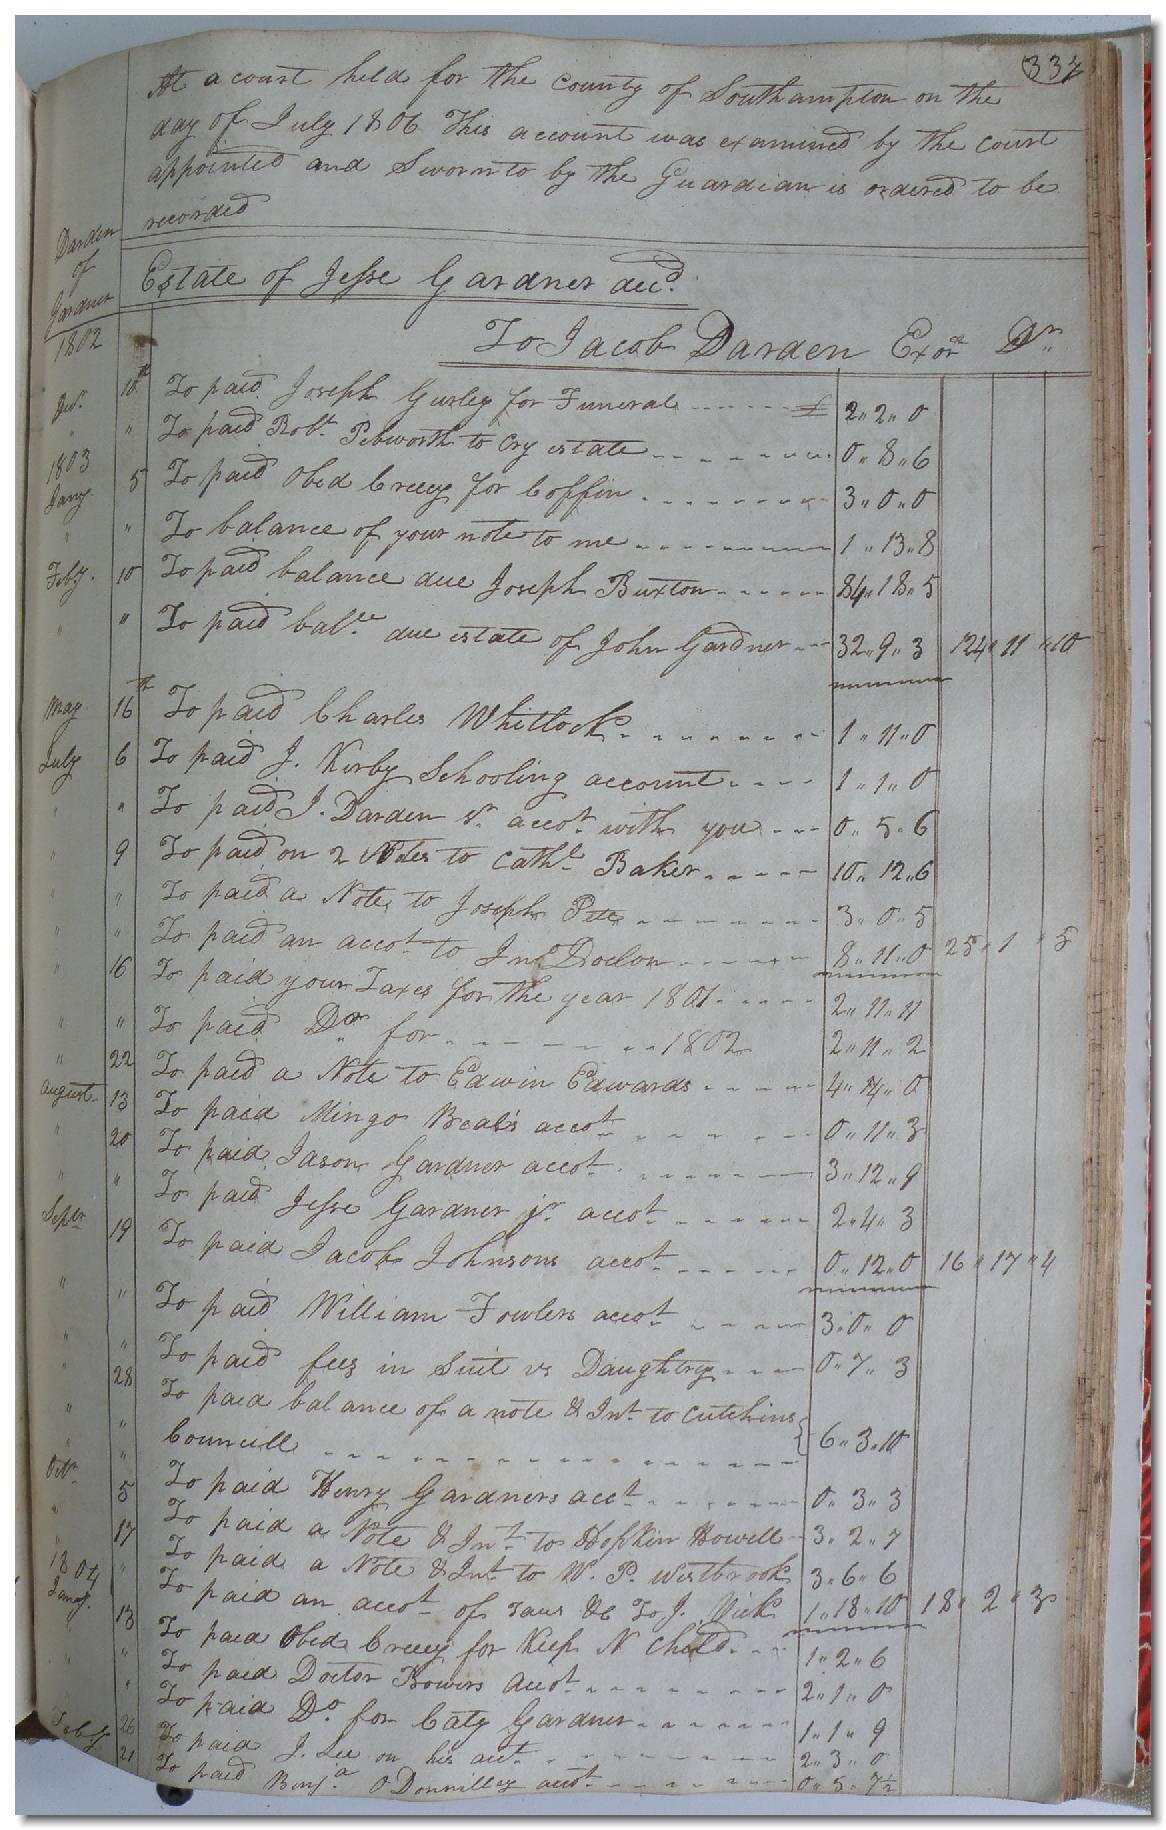 337
At a court held for the County of Southampton on the
day of July 1806 This account was examined by the court
appointed and Sworn to by the Guardian is ordered to be
recorded
Darden
of
Gardner
Estate of Jesse Gardner decd.
To Jacob Darden Exor Dr
1802
Decr. 10th To paid Joseph Gurley for Funeral £ 2" 2" 0
" " To paid Robt. Pebworth to cry estate 0" 8" 6
1803
Jany. 5 To paid Obed Creecy for Coffin 3" 0" 0
" " To balance of your note to me 1" 13" 8
Feby. 10 To paid balance due Joseph Buxton 84" 18" 5
" " To paid balce. due estate of John Gardner 32" 9" 3 124" 11" 10
May 16th To paid Charles Whitlock 1" 11" 0
July 6 To paid J. Kirby Schooling account 1" 1" 0
" " To paid J. Darden Sr. accot. with you 0" 5" 6
" 9 To paid on 2 Notes to Cathe. Baker 10" 12" 6
" " To paid a Note to Joseph Pete 3" 0" 5
" " To paid an accot. to Jno. 8" 11" 0 25" 1" 5
" 16 To paid your Taxes for the year 1801 2" 11" 11
" " To paid Do. for 1802 2" 11" 2
" 22 To paid a Note to Edwin Edwards 4" 14" 0
august 13 To paid Mingo Beal's accot. 0" 11" 3
" 20 To paid Jason Gardner accot. 3" 12" 9
" " To paid Jesse Gardner jr. accot. 2" 4" 3
Sepbr 19 To paid Jacob Johnsons accot. 0" 12" 0 16" 17" 4
" " To paid William Fowlers accot. 3" 0" 0
" " To paid fees in Suit vs Daughtry 0" 7" 3
" 28 To paid balance of a note & Int. to Cutchins
" " Councill 6" 3" 10
Octr. 5 To paid Henry Gardners acct. 0" 3" 3
" 17 To paid a Note & Int. to Hopkin Howell 3" 2" 7
" " To paid a Note & Int. to W. P. Westbrook 3" 6" 6
1804
Jany. 13 To paid an accot. of Taxs &c To J. Vick 1" 18" 10 18" 2" 3
" " To paid Obed Creecy for Keep N Child 1" 2" 6
" " To paid Doctor Bowers accot. 2" 1" 0
" 26 To paid Do. for Caty Gardner 1" 1" 9
Feby 21 To paid J. Lee on his acct. 2" 3" 0
To paid Benja. O'Donnilley accot. 0" 5" 7½